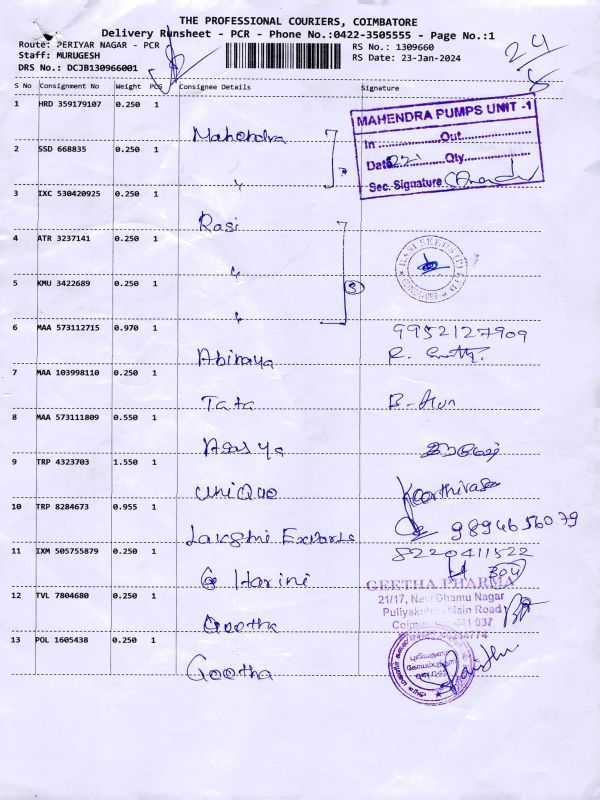 THE PROFESSIONAL COURIERS, COIMBATORE
Delivery Runsheet - PCR - Phone No.:0422-3505555 - Page No.:1
Route: PERIYAR NAGAR - PCR
Staff: MURUGESH
DRS No.: DCJB130966001
RS No.: 1309660
RS Date: 23-Jan-2024
24
S No Consignment No Weight PCS Consignee Details Signature
1 HRD 359179107 0.250 1 Mahendra
MAHENDRA PUMPS UNIT -1
In Out
Date Qty
Sec. Signature
2 SSD 668835 0.250 1 "
3 IXC 530420925 0.250 1 Rasi
4 ATR 3237141 0.250 1 "
5 KMU 3422689 0.250 1 "
3
6 MAA 573112715 0.970 1 Abinaya
9952127909
7 MAA 103998110 0.250 1 Tata
8 MAA 573111809 0.550 1
9 TRP 4323703 1.550 1 UniQue
Keerthivasa
10 TRP 8284673 0.955 1 Lakshmi Exports 9894656079
11 IXM 505755879 0.250 1 Harini
8220411522
12 TVL 7804680 0.250 1 Geetha
GEETHA PHARMA
21/17, New Dhamu Nagar
Puliyakulam Main Road
13 POL 1605438 0.250 1 Geetha